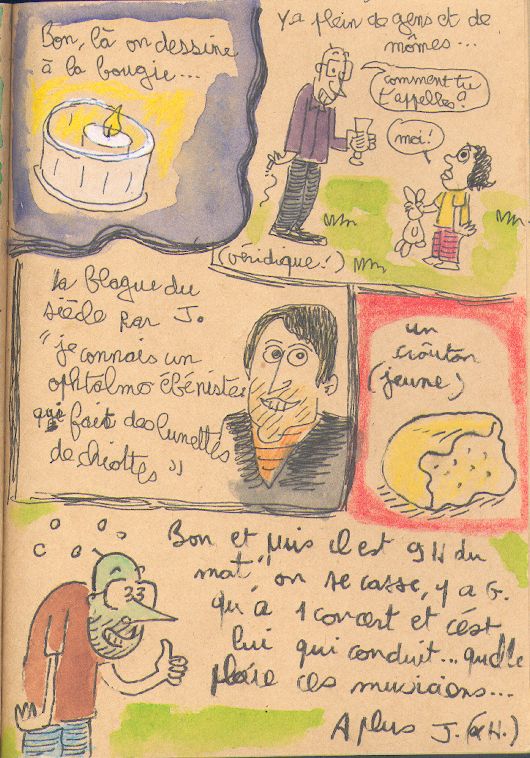 Bon, là on dessine
à la bougie...
Y a plein de gens et de
mômes...
comment tu
t'appelles?
moi!
(véridique!)
la blague du
siècle par J.
"je connais un
ophtalmo ébéniste
qui fait des lunettes
de chiottes"
un
croûton
(jeune)
Bon et puis il est 9 H du
mat', on se casse, y a G.
qu'a 1 concert et c'est
lui qui conduit... quelle
plaie ces musiciens...
A plus J. (&H.)